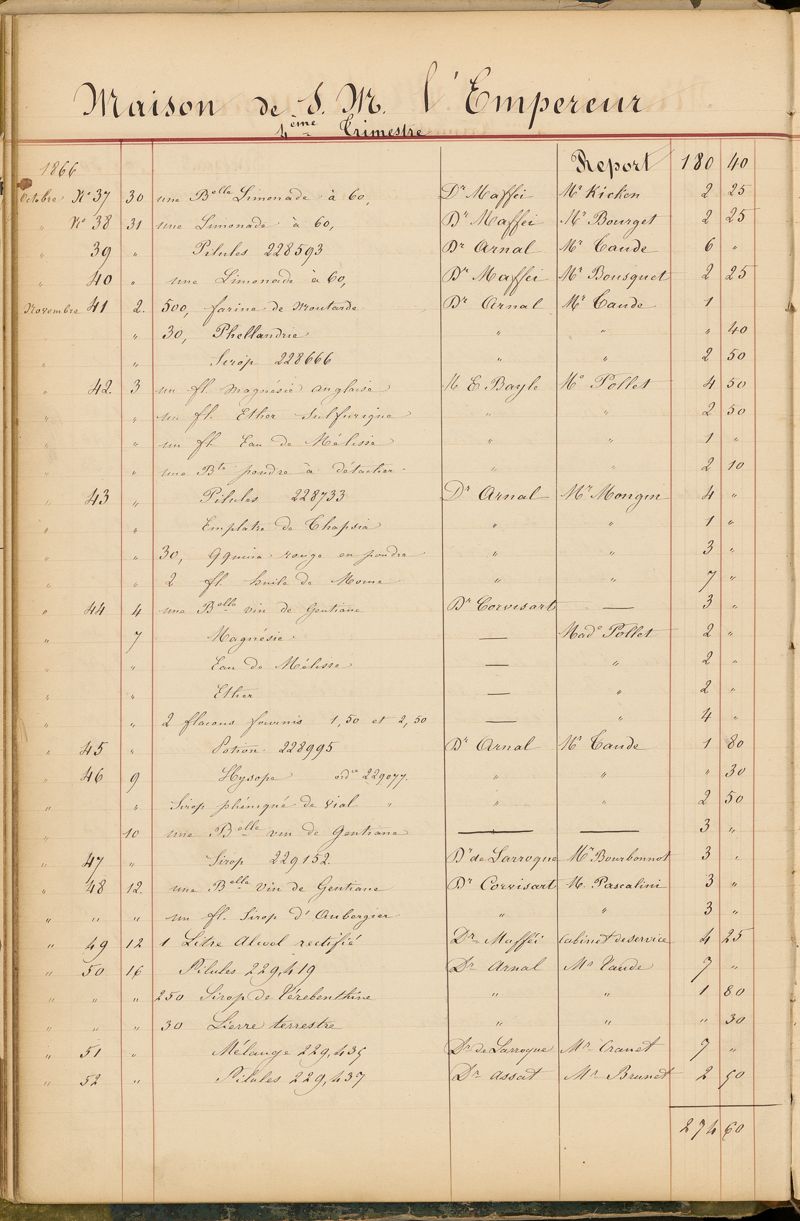 Maison de S. M. l'Empereur
4ème Trimestre
1866 Report 180 40
Octobre No 37 30 une Blle Limonade à 60, Dr Maffei Mr Kicken 2 25
" No 38 31 une Limonade à 60, Dr Maffei Mr Bourget 2 25
" 39 " Pilules 228593 Dr Arnal Mr Taude 6 "
" 40 " une Limonade à 60, Dr Maffei Mr Bousquet 2 25
Novembre 41 2. 500, farine de Moutarde Dr Arnal Mr Taude 1
" 30, Phellandrie " " " 40
" " Sirop 228666 " " 2 50
" 42 3 un fl. Magnésie anglaise M E Bayle Mr Pollet 4 50
" " un fl. Ether Sulfurique " " 2 50
" " un fl. Eau de Mélisse " " 1 "
" " une Bte poudre à détacher " " 2 10
" 43 " Pilules 228733 Dr Arnal Mr Mongin 4 "
" " Emplatre de Thapsia " " 1 "
" " 30, Qquina rouge en poudre " " 3 "
" " 2 fl. huile de Morue " " 7 "
" 44 4 une Blle vin de Gentiane Dr Corvisart — 3 "
" 7 Magnésie — Made Pollet 2 "
" " Eau de Mélisse — " 2 "
" " Ether — " 2 "
" " 2 flacons fournis 1,50 et 2,50 — " 4 "
" 45 " Potion 228995 Dr Arnal Mr Taude 1 80
" 46 9 Hysope ordce 229077. " " " 30
" " Sirop phéniqué de Vial " " " 2 50
10 une Blle vin de Gentiane — — 3 "
" 47 " Sirop 229152 Dr de Larroque Mr Bourbonnot 3 "
" 48 12. une Blle Vin de Gentiane Dr Corvisart M. Pascalini 3 "
" " " un fl. Sirop d'Aubergier " " 3 "
" 49 12 1 Litre Alcool rectifié Dr Maffei Cabinet de service 4 25
" 50 16 Pilules 229,419 Dr Arnal Mr Taude 7 "
" " " 250 Sirop de Térébenthine " " 1 80
" " " 30 Lierre terrestre " " " 30
" 51 " Mélange 229,435 Dr de Larroque Mr Cranet 7 "
" 52 " Pilules 229,437 Dr Assat Mr Brunet 2 50
274 60